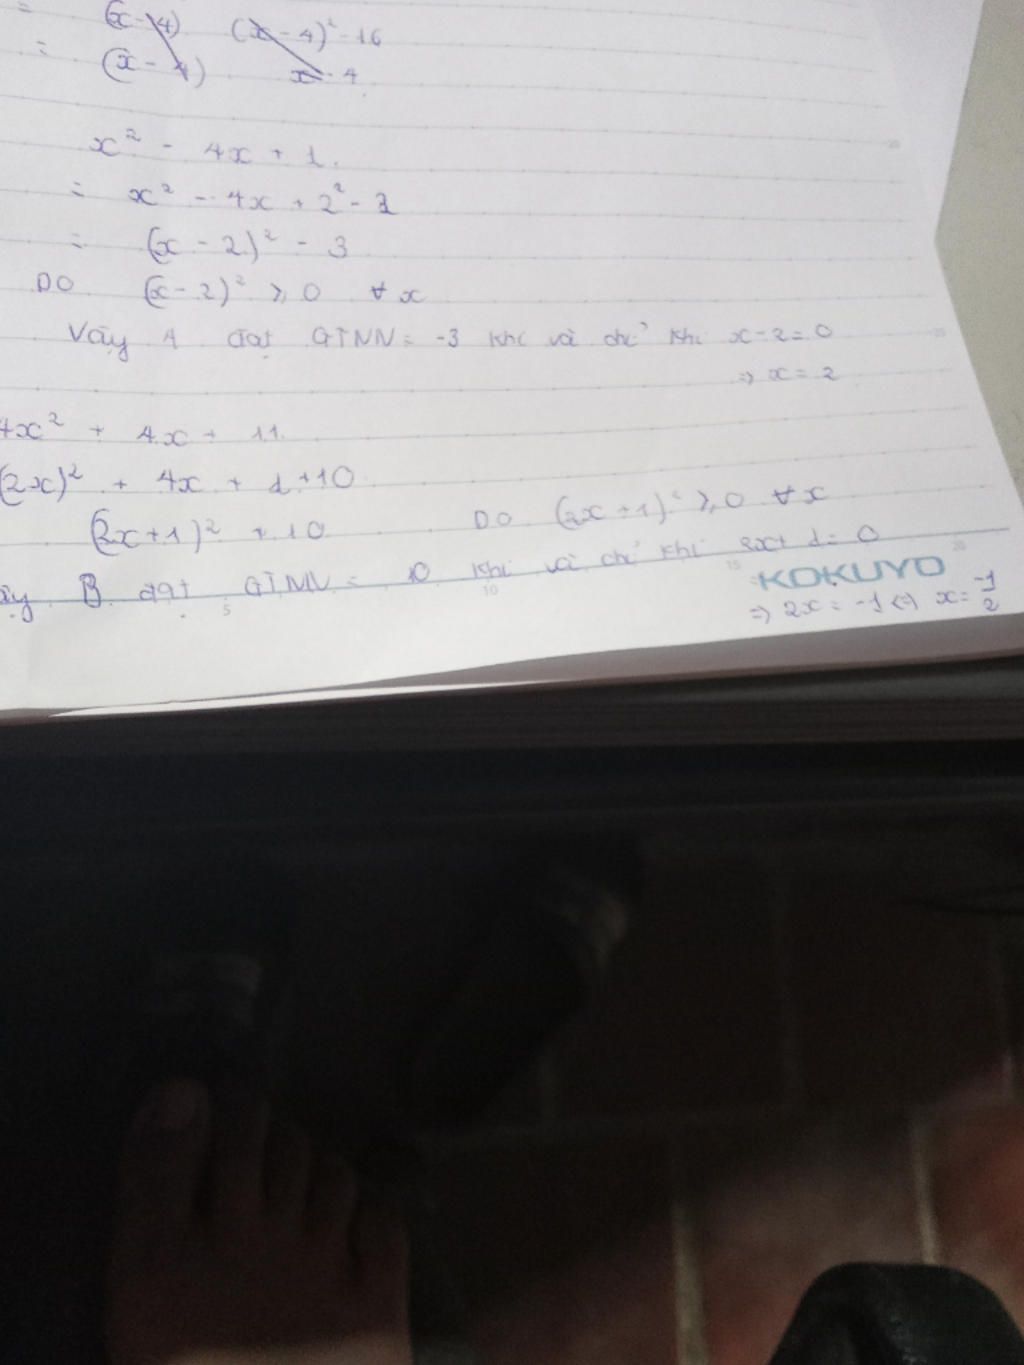 = (x-4) (x-4)² - 16
= (x-4) x-4
x² - 4x + 1.
= x² - 4x + 2² - 3
= (x-2)² - 3
DO (x-2)² ⩾ 0 ∀ x
Vậy A đạt GTNN = -3 khi và chỉ khi x-2=0
=> x = 2
4x² + 4x + 11
(2x)² + 4x + 1 + 10
(2x+1)² + 10 DO (2x+1)² ⩾ 0 ∀ x
ậy B đạt GTNN = 10 khi và chỉ khi 2x+1=0
KOKUYO
=> 2x = -1 <=> x = -1/2
5 10 15 20